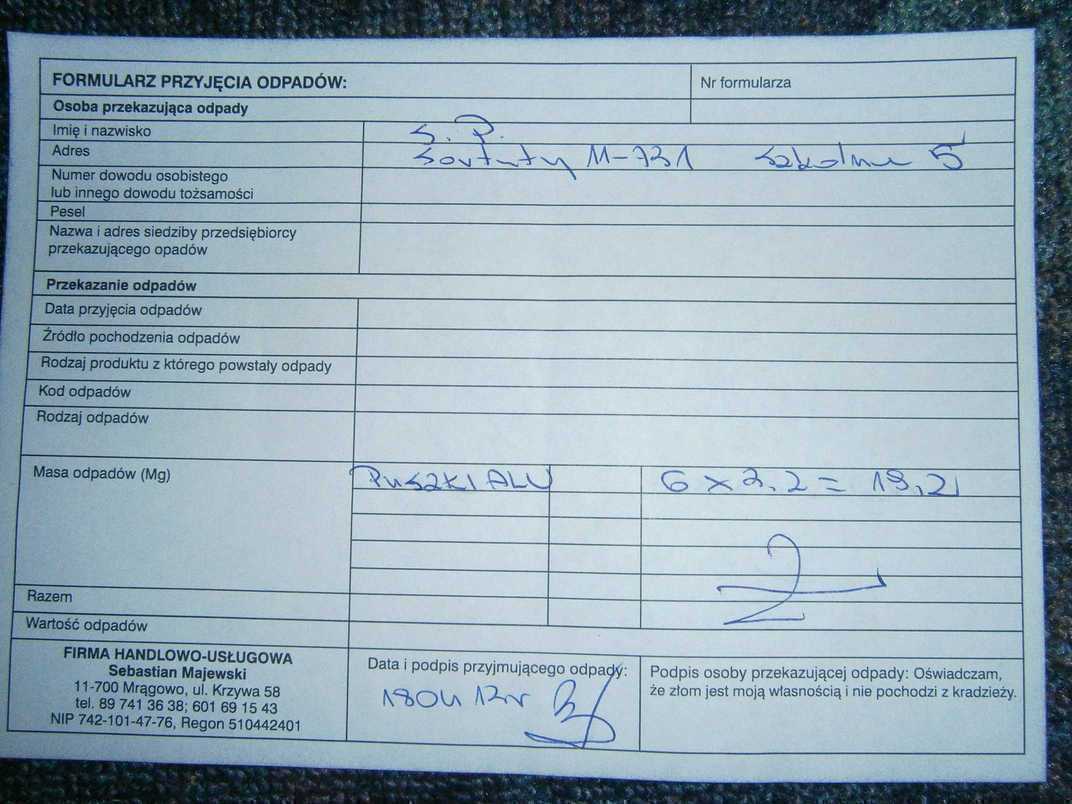 FORMULARZ PRZYJĘCIA ODPADÓW:
Nr formularza
Osoba przekazująca odpady
Imię i nazwisko S.P.
Adres Sorkwity 11-731 Szkolna 5
Numer dowodu osobistego
lub innego dowodu tożsamości
Pesel
Nazwa i adres siedziby przedsiębiorcy
przekazującego opadów
Przekazanie odpadów
Data przyjęcia odpadów
Źródło pochodzenia odpadów
Rodzaj produktu z którego powstały odpady
Kod odpadów
Rodzaj odpadów
Masa odpadów (Mg) Puszki ALU 6 x 3,2 = 19,2
Razem
Wartość odpadów
FIRMA HANDLOWO-USŁUGOWA
Sebastian Majewski
11-700 Mrągowo, ul. Krzywa 58
tel. 89 741 36 38; 601 69 15 43
NIP 742-101-47-76, Regon 510442401
Data i podpis przyjmującego odpady:
Podpis osoby przekazującej odpady: Oświadczam,
że złom jest moją własnością i nie pochodzi z kradzieży.